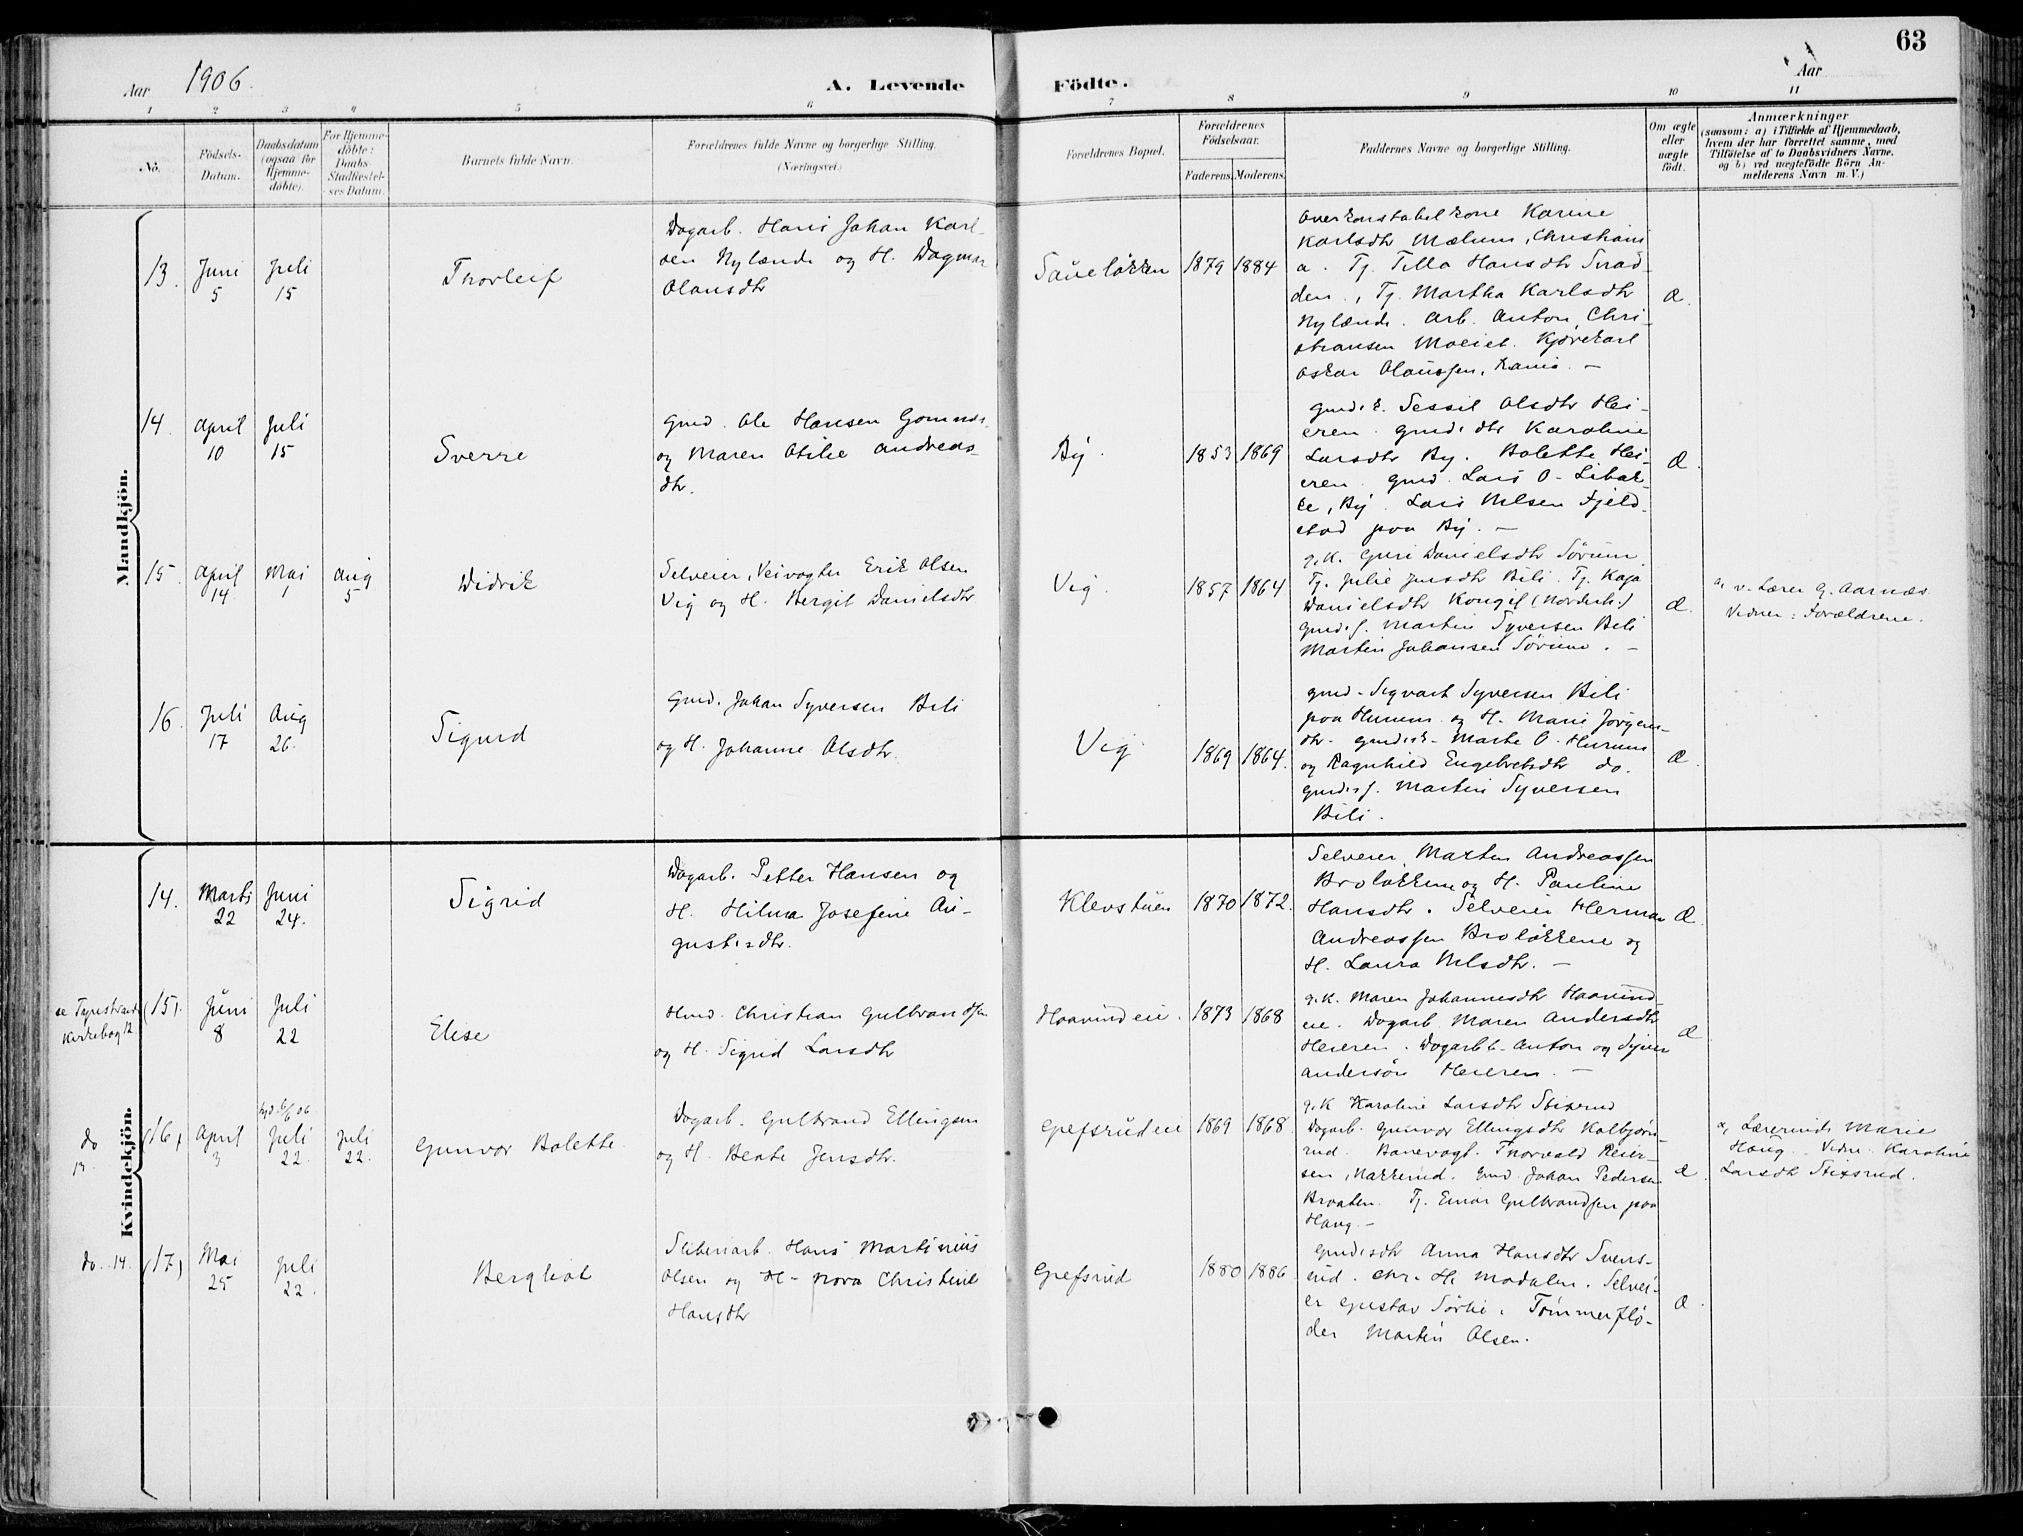 63
Aar 1906.
A. Levende Födte.
Aar
1 2 3 4 5 6 7 8 9 10 11
No.
Födsels-
Datum.
Daabsdatum
(ogsaa for
Hjemme-
döbte).
For Hjemme-
döbte:
Daabs-
Stadfæstel-
ses Datum.
Barnets fulde Navn.
Forældrenes fulde Navne og borgerlige Stilling.
(Næringsvei.)
Forældrenes Bopæl.
Forældrenes
Födselsaar.
Faderens.
Moderens.
Faddernes Navne og borgerlige Stilling.
Om ægte
eller
uægte
födt.
Anmærkninger
(saasom: a) i Tilfælde af Hjemmedaab,
hvem der har forrettet samme, med
Tilföielse af to Daabsvidners Navne,
og b) ved uægtefödte Börn An-
melderens Navn m. V.)
Mandkjön.
13.
Juni
5
Juli
15
Thorleif
Dagarb. Hans Johan Karl-
sen Nylænde og H. Dagmar
Olausdtr
Saueløkken
1879
1884
Overkonstabelkone Karine
Karlsdtr Mælum, Christiani
a. Tj. Tilla Hansdtr Svad-
den., Tj. Martha Karlsdtr
Nylænde. Arb. Anton Chri-
stiansen Moeiet. Kjørekarl
Oskar Olaussen, Ramis. —
Æ.
14.
April
10
Juli
15
Sverre
Gmd. Ole Hansen Gomnæs
og Maren Otilie Andreas-
dtr.
By.
1853
1869
gmds k. Sessil Olsdtr Hei-
eren. gmds dtr Karoline
Larsdtr By. Bolette Hei-
eren. gmd. Lars O. Libak-
ke, By. Lars Nilsen Fjeld-
stad paa By. —
Æ.
15.
April
14
Mai
1
Aug
5
Didrik
Selveier, Veivogter Erik Olsen
Vig og H. Bergit Danielsdtr
Vig.
1857
1864
g.K. Guri Danielsdtr Sørum.
Tj. Julie Jensdtr Bili. Tj. Kaja
Danielsdtr Kongil (Norderh.)
gmds s. Martin Syversen Bili
Martin Johansen Sørum. —
Æ.
a, v. Lærer G. Aarnæs
Vidner: Forældrene.
16.
Juli
17
Aug
26.
Sigurd
Gmd. Johan Syversen Bili
og H. Johanne Olsdtr.
Vig
1869
1864.
gmd. Sigvart Syversen Bili
paa Hurum og H. Marie Jörgens-
dtr. gmds k. Marte O. Hurum
og Ragnhild Engebretsdtr do.
gmds s. Martin Syversen
Bili.
Æ.
Kvindekjön.
14.
Marts
22
Juni
24.
Sigrid
Dagarb. Petter Hansen og
H. Hilma Josefine Au-
gustsdtr.
Klevstuen
1870
1872.
Selveier Martin Andreassen
Broløkkene og H. Pauline
Hansdtr. Selveier Herman
Andreassen Broløkkene og
H. Laura Nilsdtr. —
Æ.
se Tyristrands
Kirkebog 12
(15).
Juni
8
Juli
22
Elise
Hmd. Christian Gulbrandsen
og H. Sigrid Larsdtr
Haavindeie.
1873
1868
g.K. Maren Johannesdtr Haavind-
eie. Dagarb. Maren Andersdtr
Heieren. Dagarb b. Anton og Syver
Andersøn Heieren. —
Æ
do
13.
(16)
April
3
hjd. 6/6 06
Juli
22.
Juli
22.
Gunvor Bolette
Dagarb. Gulbrand Ellingsen
og H. Beate Jensdtr.
Gjefsrudeie
1869
1868
g.K Karoline Larsdtr Stixrud
Dagarb. Gunvor Ellingsdtr Kolbjørns-
rud. Banevogt. Thorvald Reier-
sen, Nakkerud. Gmd Johan Pedersen
Braaten. Tj. Einar Gulbrandsen paa
Haug. —
Æ.
a, Lærerinde Marie
Haug. Vidne: Karoline
Larsdtr Stixsrud.
do. 14.
(17)
Mai
25
Juli
22.
Bergliot
Sliberiarb. Hans Martinius
Olsen og H. Nora Christine
Hansdtr
Gjefsrud
1880
1886
Gmdsdtr Anna Hansdtr Svens-
rud. Chr. H. Modalen. Selvei-
er Gustav Sørlie. Tømmerflö-
der Martin Olsen.
Æ.